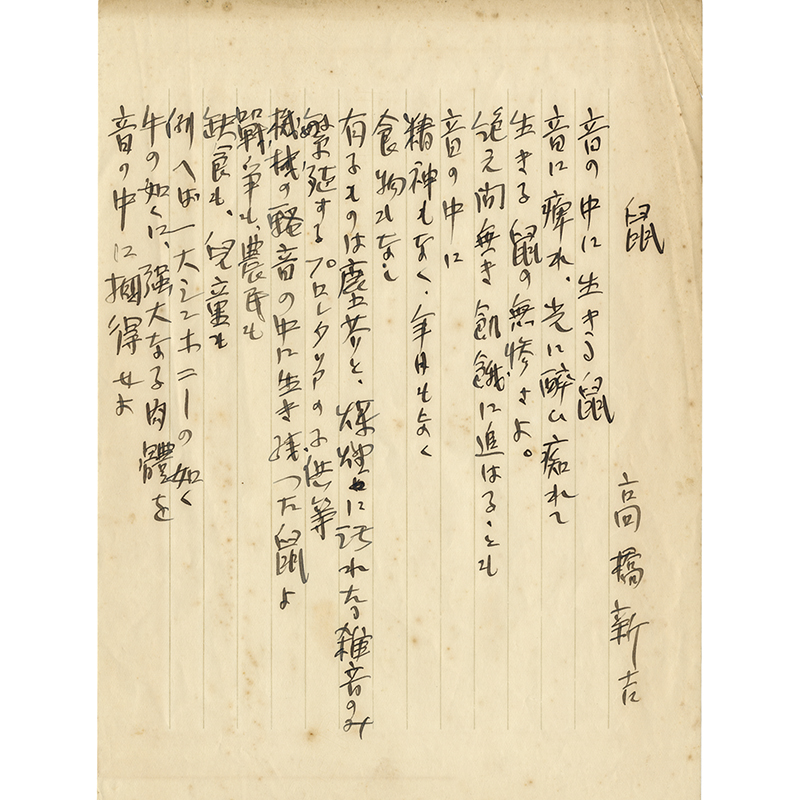 鼠
高橋新吉
音の中に生きる鼠
音に痺れ、光に酔ひ痴れて
生きる鼠の無惨さよ。
絶え間無き飢餓に追はるゝとも
音の中に
精神もなく、年月もなく
食物もなし
有るものは塵芥と、煤煙に汚れたる雑音のみ
繁殖するプロレタリアの子供等
機械の騒音の中に生き残つた鼠よ
戦争も、農民も
缺食も、兒童も
例へば一大シンホニーの如く
牛の如くに、强大なる肉體を
音の中に摑得せよ